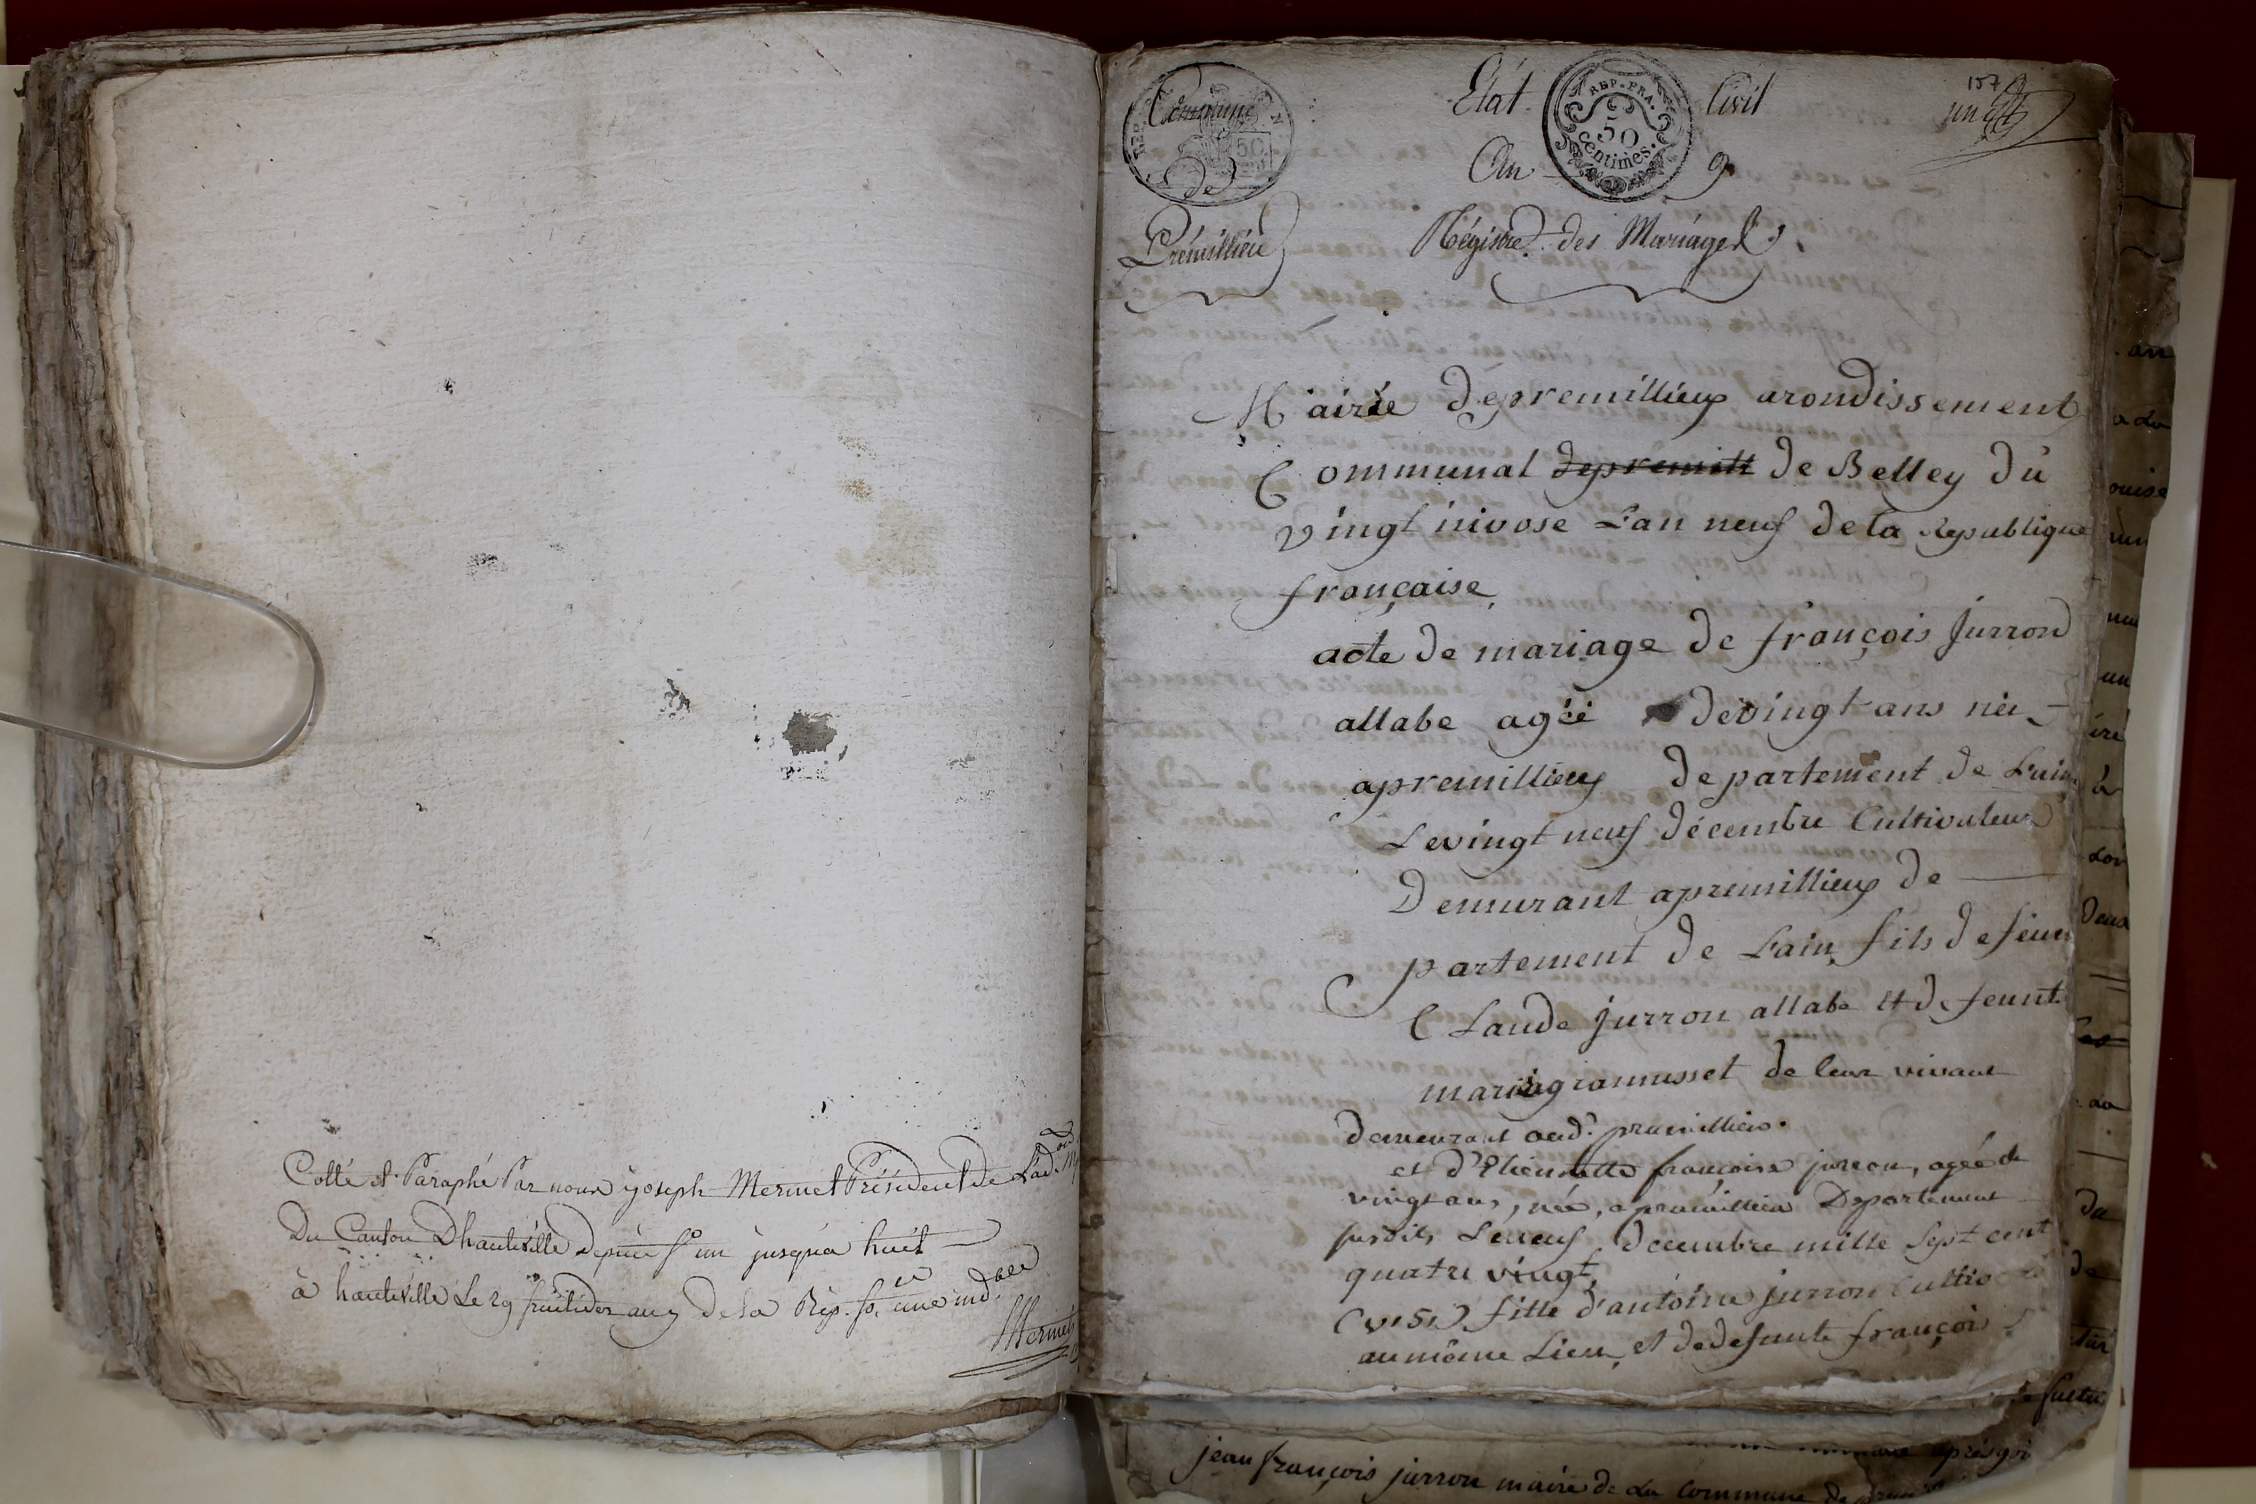 Cotté et Paraphé Par nous joseph Mermet Président de L'ad.on
Du Canton Dhauteville Depuis f.o un jusqua huit
à hauteville Le 29 fructidor an 8 de la Rép. f.se une ind.ble
Mermet
Commune
de
Prémillieu
Etat Civil
REP. FRA.
50
centimes.
An 9
157
un
Régistre des Mariages
Mairie depremillieux arondissement
Communal depremill de Belley du
vingt nivose Lan neuf de la Republique
française
acte de mariage de françois Jurron
allabe agéé devingt ans néi
apremillieux departement de Lain
Levingt neuf décembre Cultivateur
Demurant apremillieux de
partement de Lain fils defeun
Claude jurron allabe et defeunt
marie grammusset de leur vivant
demeurant aud.t premillieu.
et d'Etiennette françoise jurron, agéé de
vingt ans, née, a premillieu Departement
susdit, Leneuf decembre mille Sept cent
quatre vingt,
fille d'antoine jurron Cultiv
au même Lieu, et dedefunte françois
jean françois jurron maire de La Commune de prem